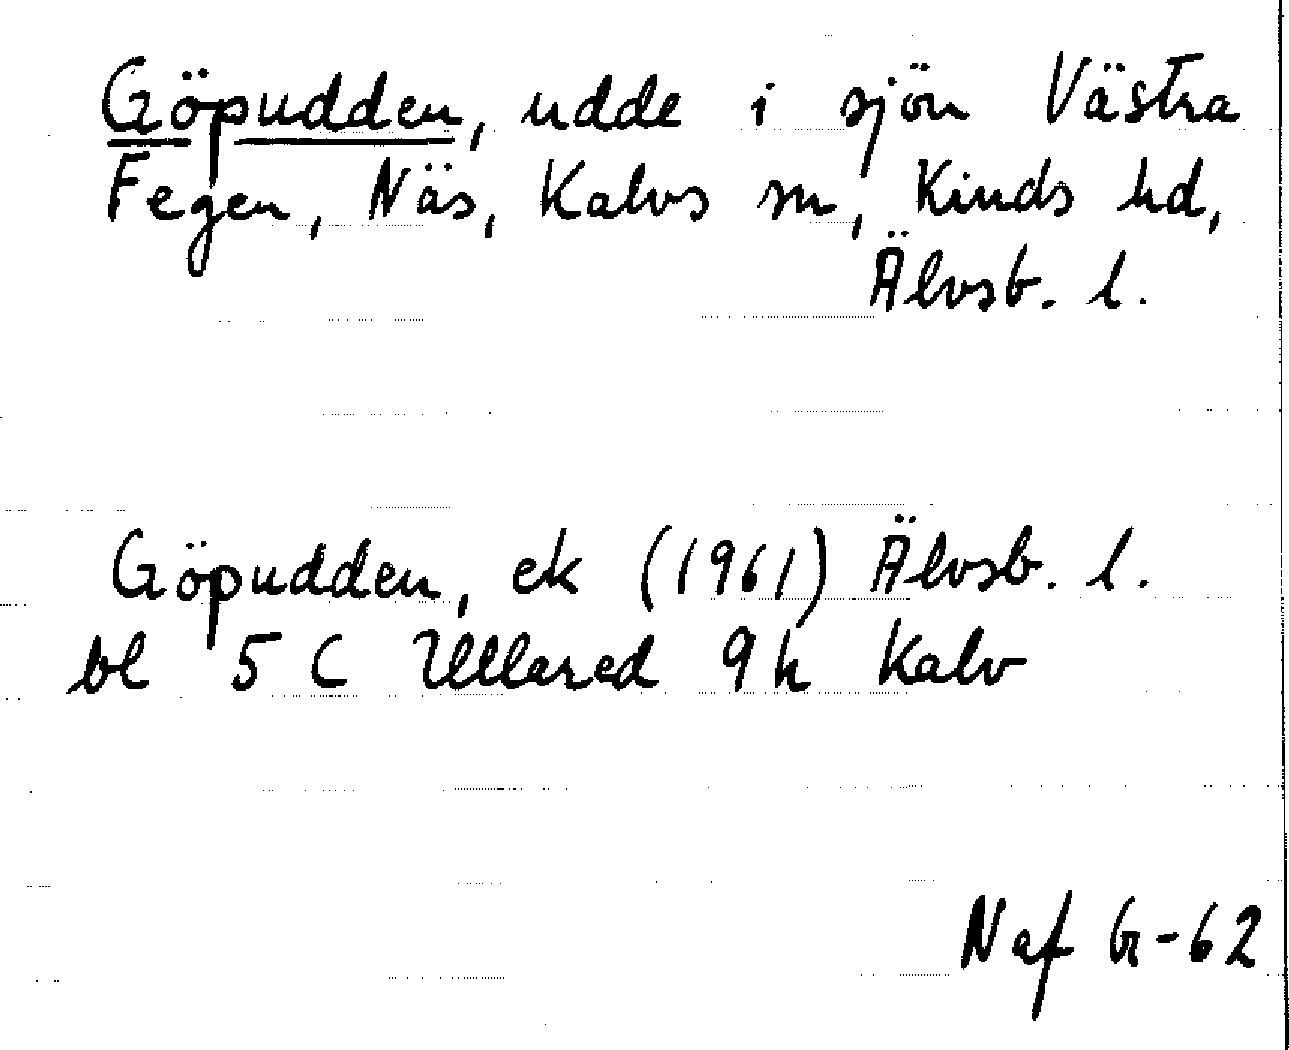 Göpudden, udde i sjön Västra
Fegen, Näs, Kalvs sn, Kinds hd,
Älvsb. l.
Göpudden, ek (1961) Älvsb. l.
bl 5 C Ullared 9 h Kalv
Naf G-62